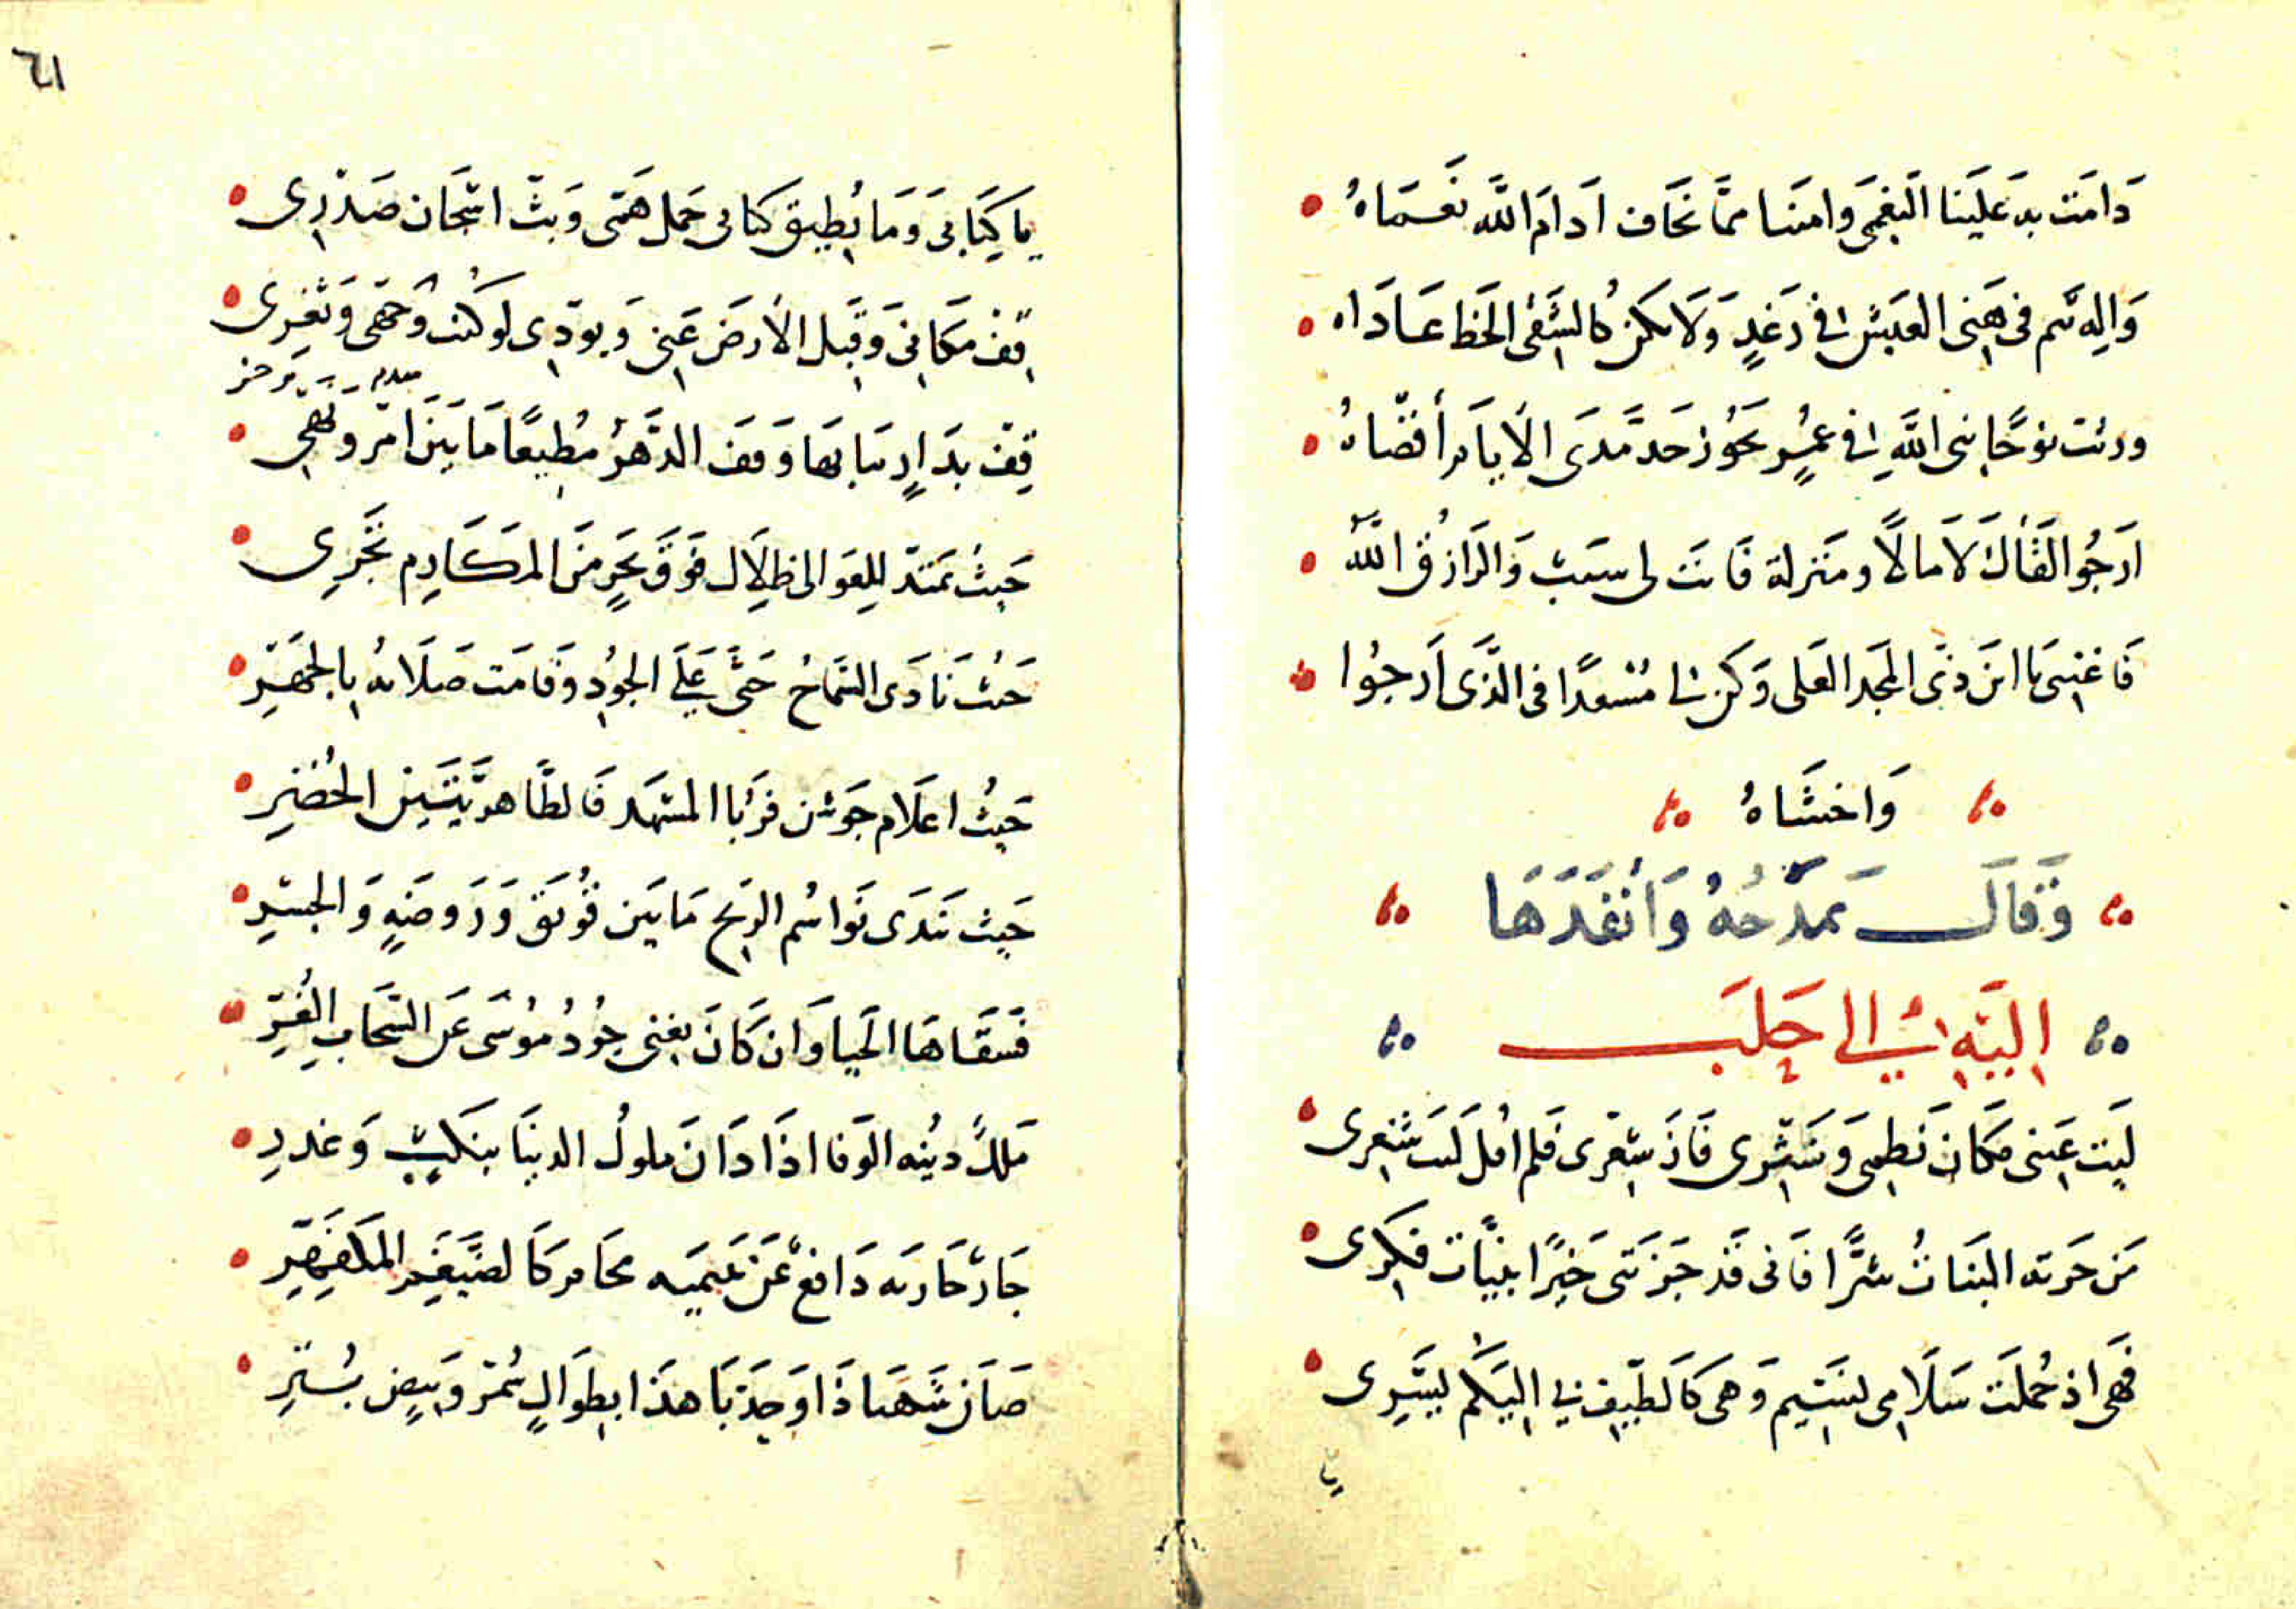 دَامَت به عَلَينا النِعْمَى وامنَنا ممَّا نَخَاف اَدَامَ اللَّه نعْمَاهُ
وَالِهِ تم فى هَنِى العَيش فِى رَغَدٍ وَلَا تكن كالشَقى الحَظ عَادَاه
ورثت نوحًا نبى اللَّهِ فى عمُرٍ تحَوُز حَدَّ مَدَى الأيام أقصَاهُ
ارَجُو لقَاكَ لَا مالاً ومنزلة فَانت لى سَبَب وَالرَازقُ اللَّهُ
فَاغنِنى يَا ابنَ ذى المجَد العَلى وَكن لى مُسْعدًا فى الذَّى اَرجُوا
وَاخشَاهُ
وَقَالَ يَمْدَحُهُ وَأَنْفَذَهَا
اِلَيْهِ اِلى حَلَب
لَيت عَينى مكَان نَظمِى وَنَثرى فَاذَ شِعْرى فلم اقل لَيت شعرى
مَن حَرَته البَنَاتُ شرًّا فَانى قَد جَزَتنى خَيرًا بنيَّات فِكرى
فَهى اذ حُملَت سَلَامِى لنَسَيم وَهى كَالطَيف فى اليَكُم ليَسَرى
٦١
يَا كِتَابى وَمَا يُطيق كتابى حَمل هَمّى وَبثّ اشجَان صَدْرِى
قِف مكَانى وَقَبِّل الأرضَ عَنِى وَبودِّى لو كُنت وَجْهى وَثَغرِى
قِفْ بدَارٍ مَا بهَا وَقفَ الدَّهرُ مُطيعًا مَا بَيَنَ امْرٍ وَنهْىِ
حَيثُ تمتَدّ للِعَوالى ظِلاَل فَوقَ بَحَرٍ مَنَ المكَارِم تَجَرِى
حَيثُ نَادَى السَّمَاحُ حَىَّ عَلَى الجُودِ وَقامَت صَلَاتهُ بِالجَهَرِ
حَيثُ اعلَام جَوشن فرُبَا المشهَد فَالظَّاهريَّتَين الخُضْرِ
حَيث تَندَى نَوَاسُم الريح مَا بَين قُوَيق وَرَوضَةٍ وَالجسْرِ
فَسَقَاهَا الحَيا وَان كَانَ يغنى جُودُ مُوسَى عَن السَّحَابِ الغُرِّ
مَلكٌ دينُه الوَفا اذَا دَانَ ملوكُ الدنيَا بنَكثٍ وَغدرِ
جَارٌ جَارته دَافعٌ عَن عَميمَيه محَام كَالضَيغَم المكفَهِرِّ
صَان شَهبَا ذَا وَجَدّبَا هذَا بطوَالٍ سُمْرٍ وَبيضٍ بُسترِ